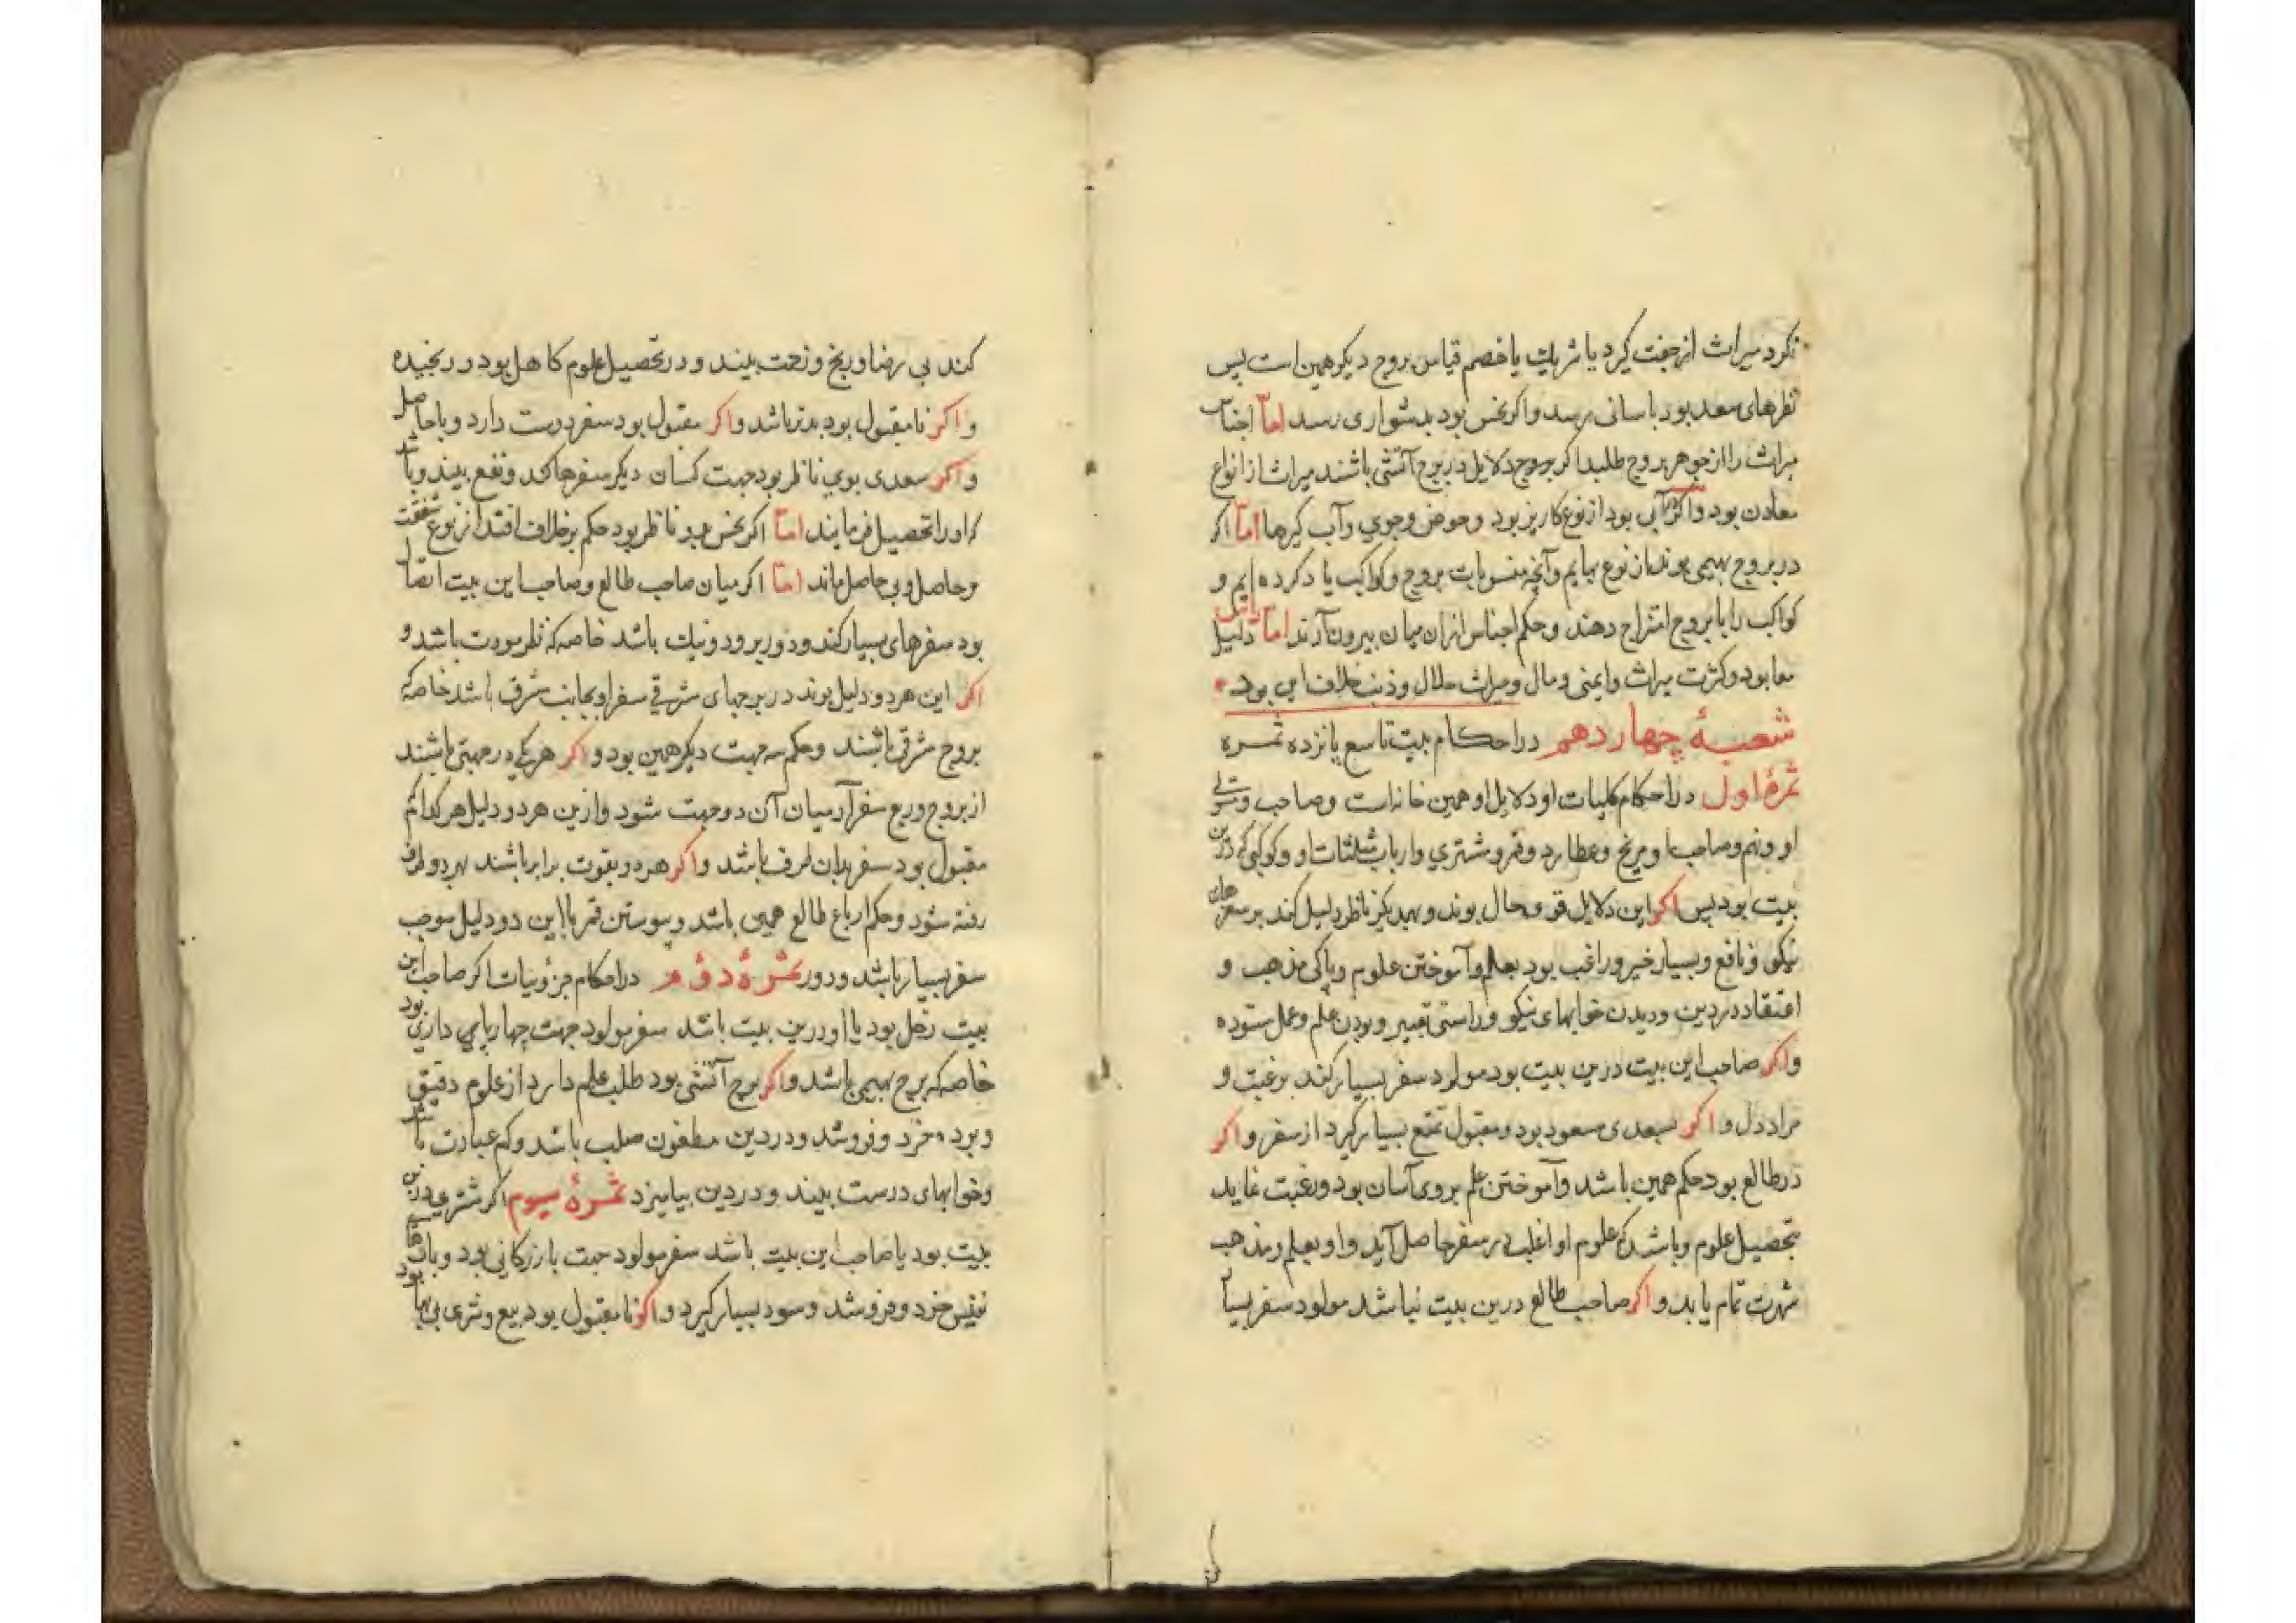 نکرد میراث از جفت کیرد یا شریک یا خصم قیاس بروج دیکر همین است پس
نظرهای سعد بود باسانی برسد و اکر نحس بود بدشواری رسد اما اجناس
میراث را از جوهر بروج طلبد اکر بروج دلایل در بروج آتشی باشند میراث از انواع
معادن بود و اکر آبی بود از نوع کاریز بود و حوض و جوی و آب کیرها اما اکر
در بروج بهیمی بوند از نوع بهایم و آنچه منسوبات بروج و کواکب یاد کرده ایم و
کواکب را با بروج امتزاج دهند و حکم اجناس از ان میان بیرون آرند اما دلیل
معا بود و کثرت میراث و ایمنی و مال و میراث حلال و ذنب خلاف این بود
شعبهٔ چهاردهم در احکام بیت تاسع پانزده ثمره
ثمرهٔ اول در احکام کلیات او دلایل او همین خانه است و صاحب و مستولی
او و نهم و صاحب و مریخ و عطارد و قمر و مشتری و ارباب مثلثات او و کوکبی که درین
بیت بود پس اکر این دلایل قوی حال بوند و بهمدیکر ناظر دلیل کند بر سفرهای
نیکو و نافع و بسیار خیر و راغب بود بعلم و آموختن علوم و پاکی مذهب و
اعتقاد در دین و دیدن خوابهای نیکو و راستی تعبیر و بودن علم و عمل ستوده
و اکر صاحب این بیت درین بیت بود مولود سفر بسیار کند برغبت و
مراد دل و اکر سعدی مسعود بود و مقبول تمتع بسیار کیرد از سفر و اکر
در طالع بود حکم همین باشد و آموختن علم بروی آسان بود و رغبت نماید
بتحصیل علوم و باشد که علوم او اغلب در سفر حاصل آید و او بعلم و مذهب
شهرت تمام یابد و اکر صاحب طالع درین بیت نباشد مولود سفر بسیار
کند بی رضا و رنج و زحمت بیند و در تحصیل علوم کاهل بود و رنجیده
و اکر نا مقبول بود بدتر باشد و اکر مقبول بود سفر دوست دارد و با حاصل
و اکر سعدی بوی ناظر بود جهت کسان دیکر سفرها کند و نفع بیند و باشد
که او را تحصیل فرمایند اما اکر نحس بدو ناظر بود حکم بر خلاف افتد از نوع
و حاصل و بی حاصل ماند اما اکر میان صاحب طالع و صاحب این بیت اتصال
بود سفرهای بسیار کند و دور برود و نیک باشد خاصه که نظر مودت باشد و
اکر این هر دو دلیل بوند در برجهای شرقی سفر او بجانب شرق باشد خاصه که
بروج شرقی باشند و حکم سه جهت دیکر همین بود و اکر هر یکی در جهتی باشند
از بروج و ربع سفر آن میان آن دو جهت شود و از این هر دو دلیل هر کدام
مقبول بود سفر بدان طرف باشد و اکر هر دو بقوت برابر باشند بهر دو طرف
رفته شود و حکم ارباع طالع همین باشد و پیوستن قمر با این دو دلیل موجب
سفر بسیار باشد و دور ثمرهٔ دوم در احکام جزویات اکر صاحب این
بیت زحل بود یا او درین بیت باشد سفر مولود جهت چهارپای داری بود
خاصه که برج بهیمی باشد و اکر برج آتشی بود طلب علم دارد از علوم دقیق
و برده خرد و فروشد و در دین مطعون صلب باشد و کم عبادت باشد
و خوابهای درست بیند و در دین بیامیزد ثمرهٔ سیوم اکر مشتری درین
بیت بود یا صاحب این بیت باشد سفر مولود جهت بازرکانی بود
نفیس خرد و فروشد و سود بسیار کیرد و اکر نا مقبول بود بیع و شری بی بها بود